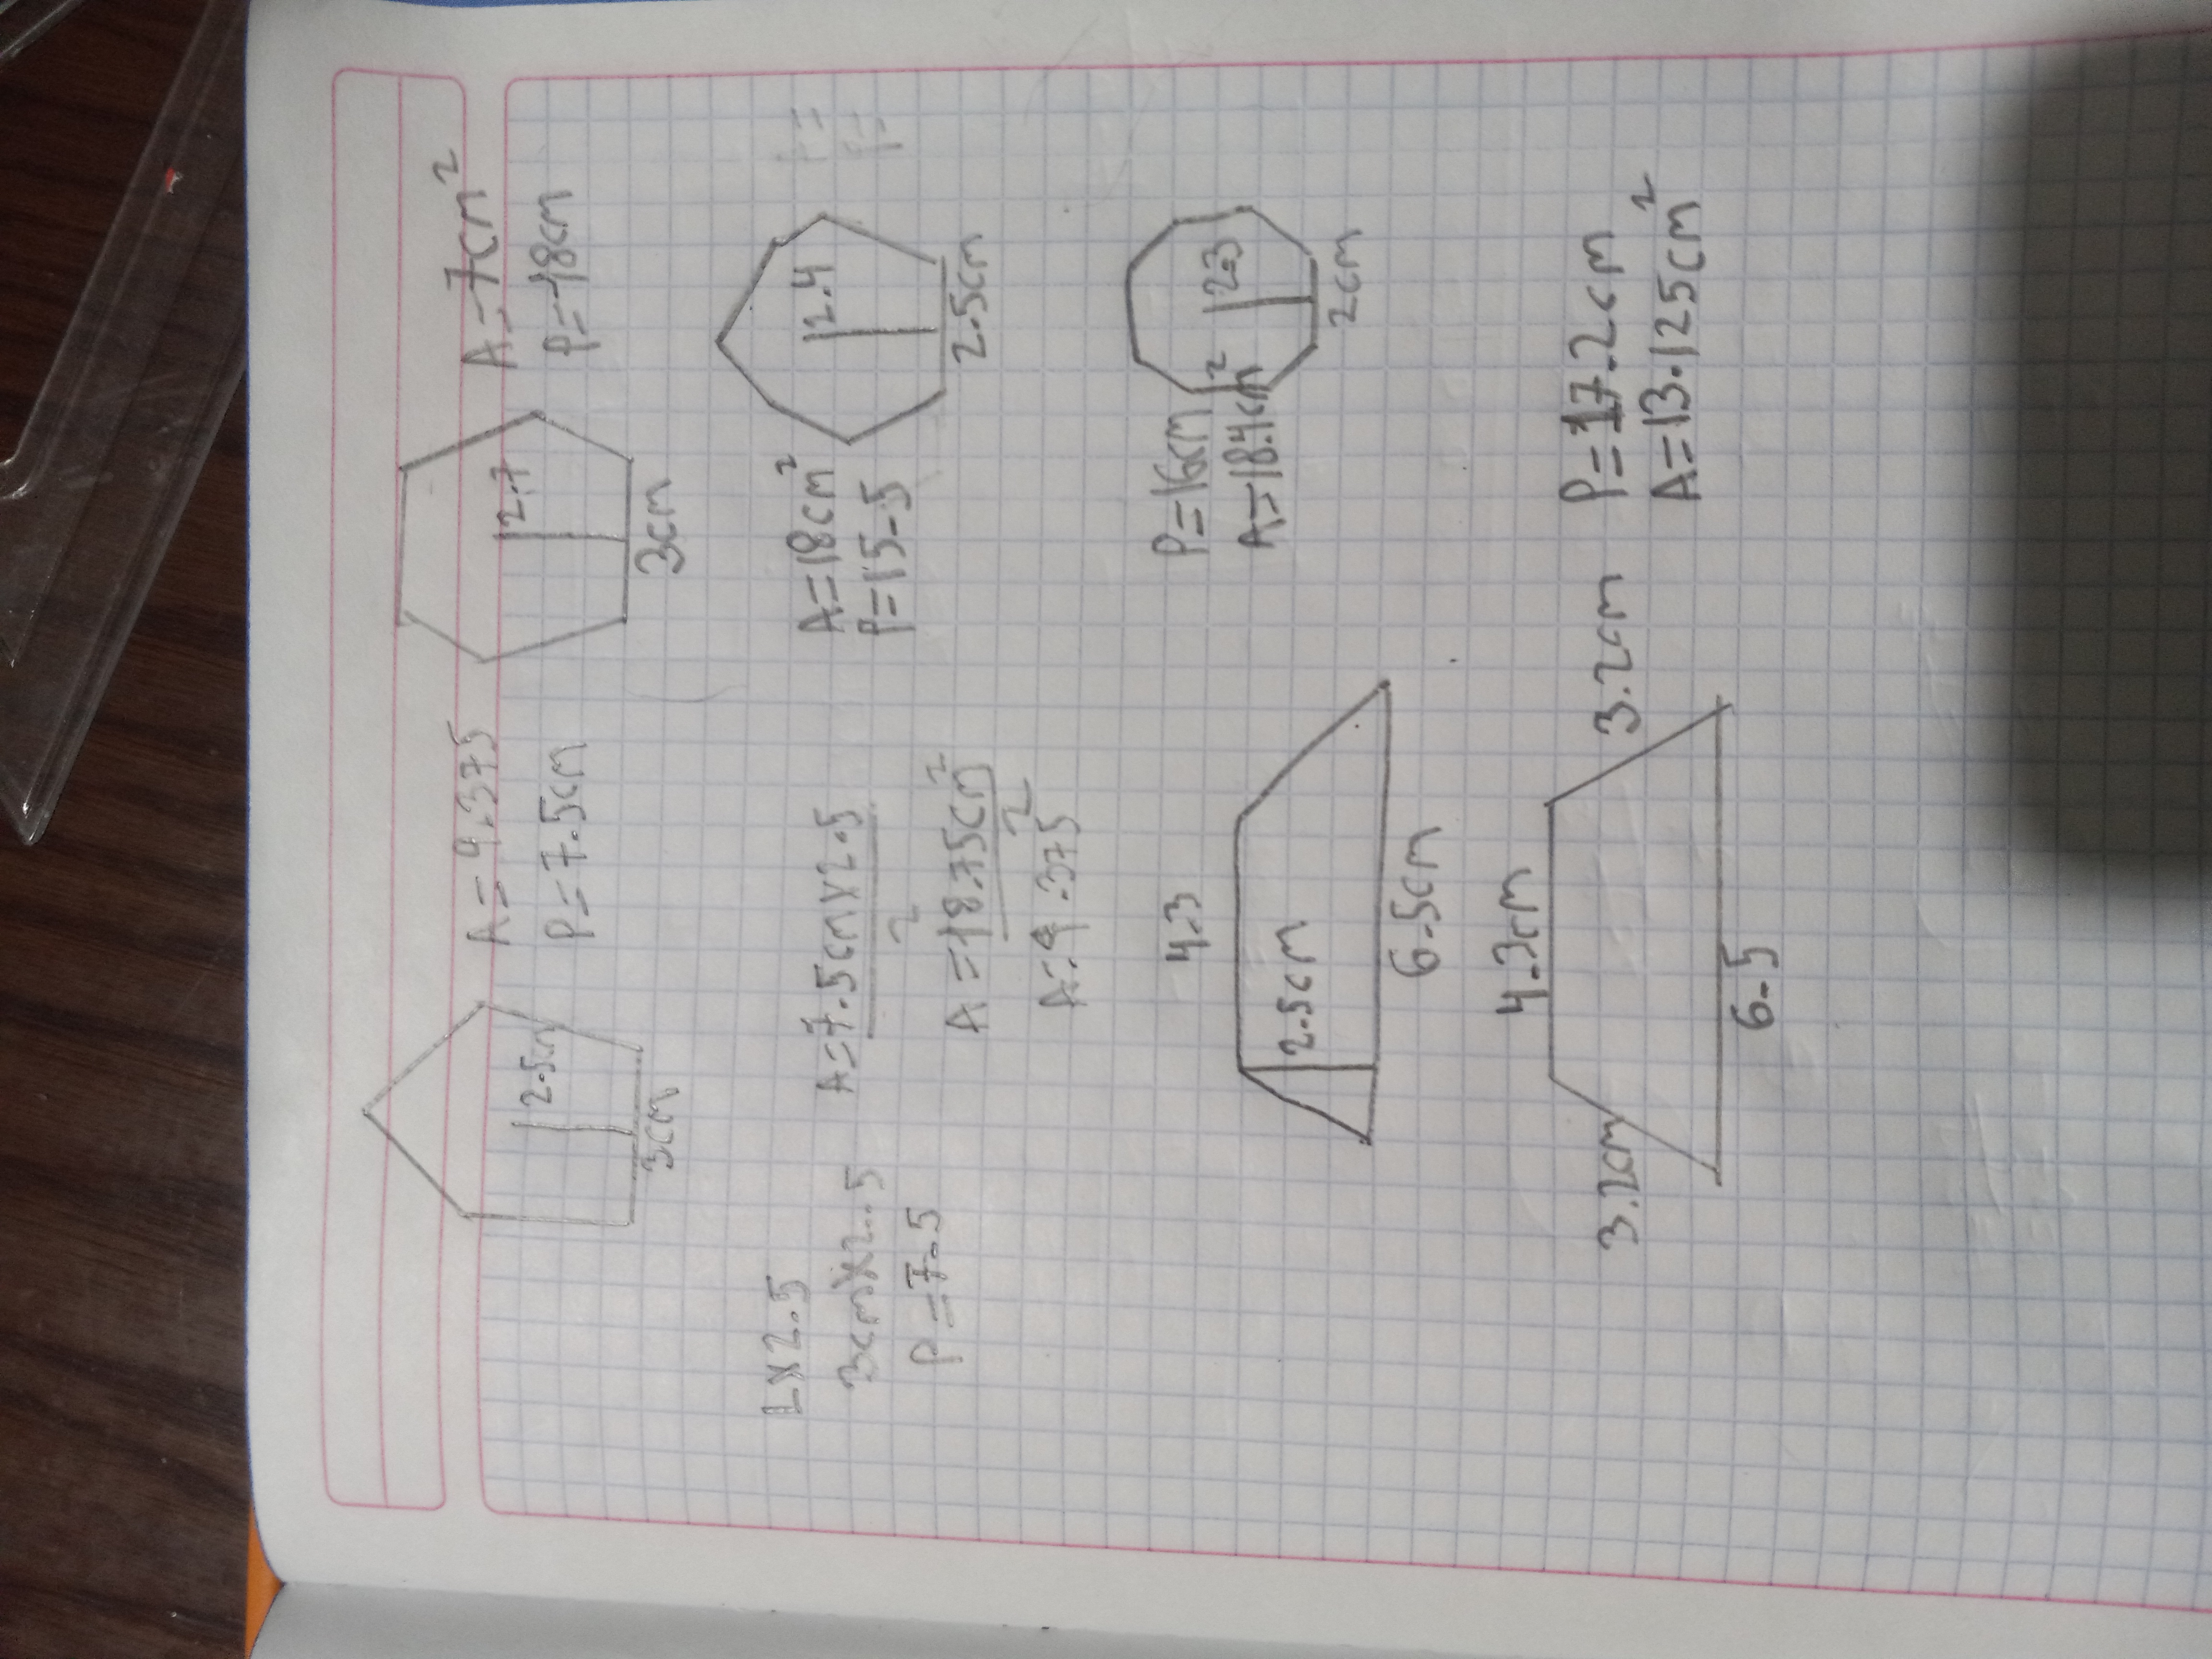 A=9.375
P=7.5cm
2.5cm
3cm
A=7cm²
P=18cm
2.7
3cm
L x 2.5
3cm x 2.5
P=7.5
A=7.5cm x 2.5
2
A=18.75cm²
2
A=9.375
A=18cm²
P=15-5
2.4
2.5cm
4.3
2.5cm
6.5cm
P=16cm
A=18.4cm²
2.3
2cm
4.3cm
3.2cm
3.2cm
6.5
P=17.2cm
A=13.125cm²